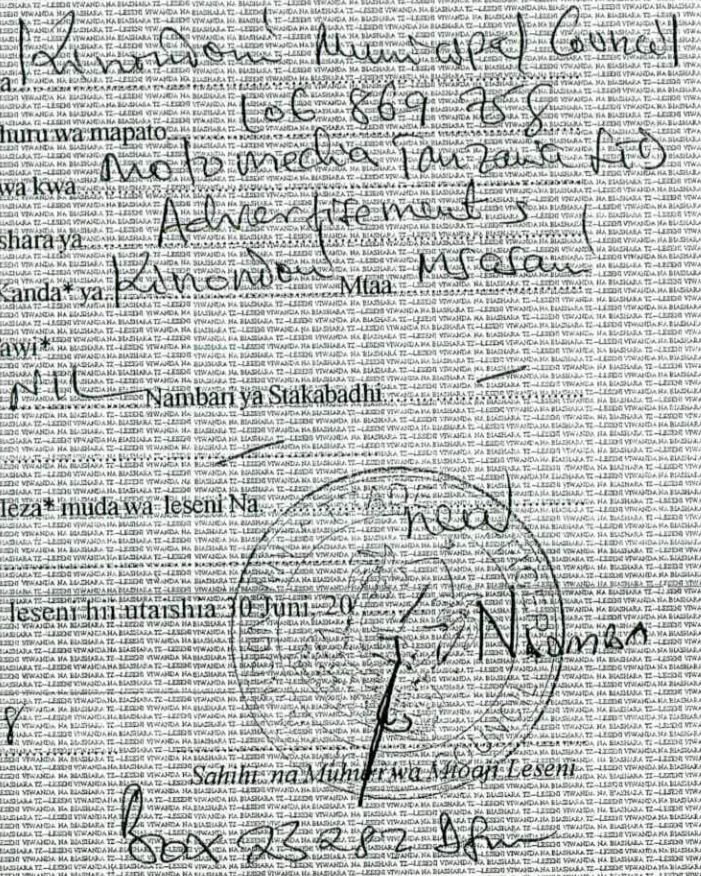 Kinondoni Municipal Council
a
huru wa mapato 106 869 758
wa kwa Moto media Tanzania LTD
shara ya Advertisements
Kanda* ya Kinondoni Mtaa Msasani
awi*
NIL Nambari ya Stakabadhi —
—
leza* muda wa leseni Na. new
leseni hii utaishia 30 Juni, 20
8
Sahihi na Muhuri wa Mtoaji Leseni
Box 23282 Dsm